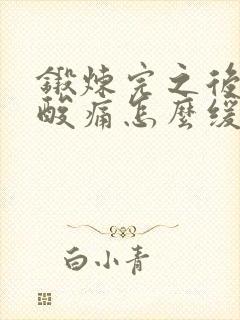 鍛炼完之後
酸痛怎麼缓
白小青